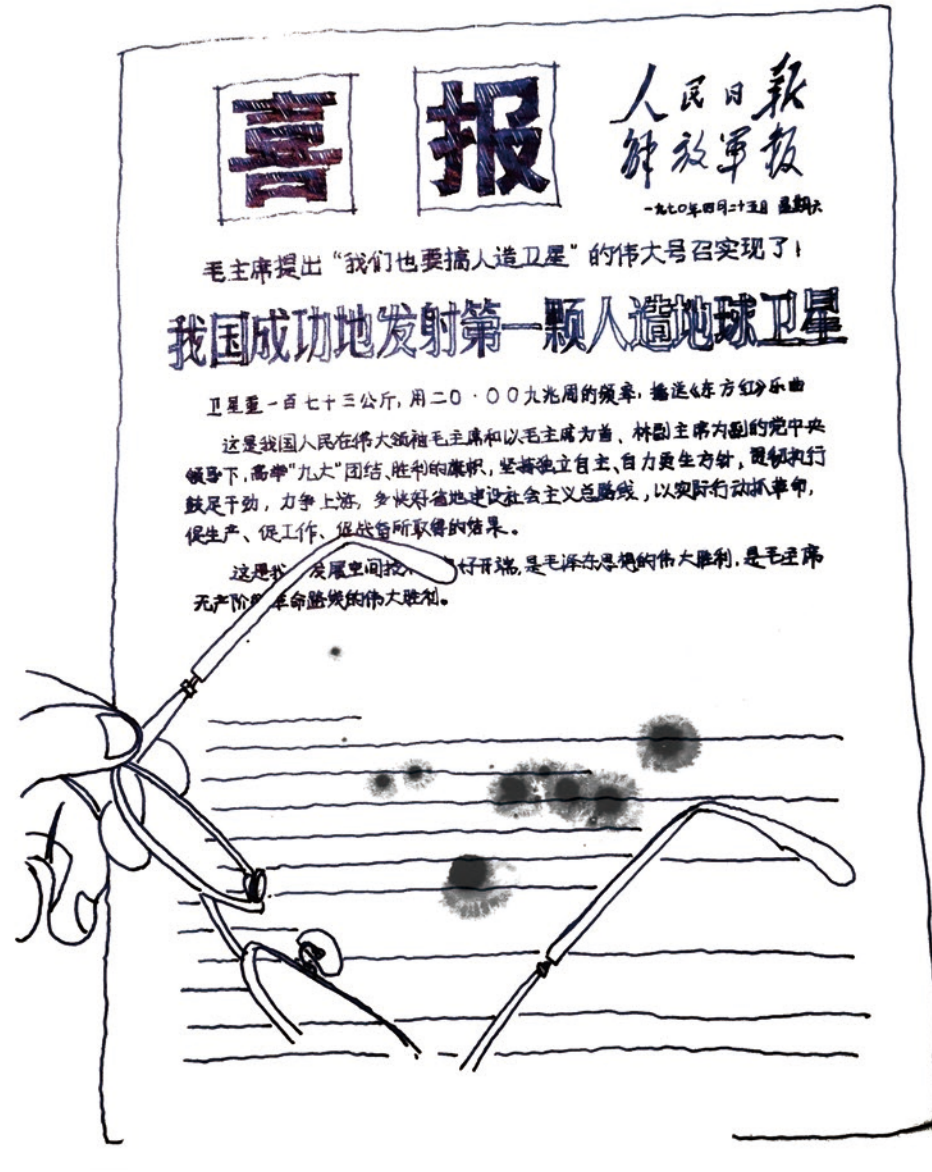 喜报
人民日报
解放军报
一九七〇年四月二十五日 星期六
毛主席提出“我们也要搞人造卫星”的伟大号召实现了！
我国成功地发射第一颗人造地球卫星
卫星重一百七十三公斤，用二〇·〇〇九兆周的频率，播送《东方红》乐曲
这是我国人民在伟大领袖毛主席和以毛主席为首、林副主席为副的党中央
领导下，高举“九大”团结、胜利的旗帜，坚持独立自主、自力更生方针，贯彻执行
鼓足干劲，力争上游，多快好省地建设社会主义总路线，以实际行动抓革命，
促生产、促工作、促战备所取得的结果。
这是我 发展空间技 好开端，是毛泽东思想的伟大胜利，是毛主席
无产阶 革命路线的伟大胜利。